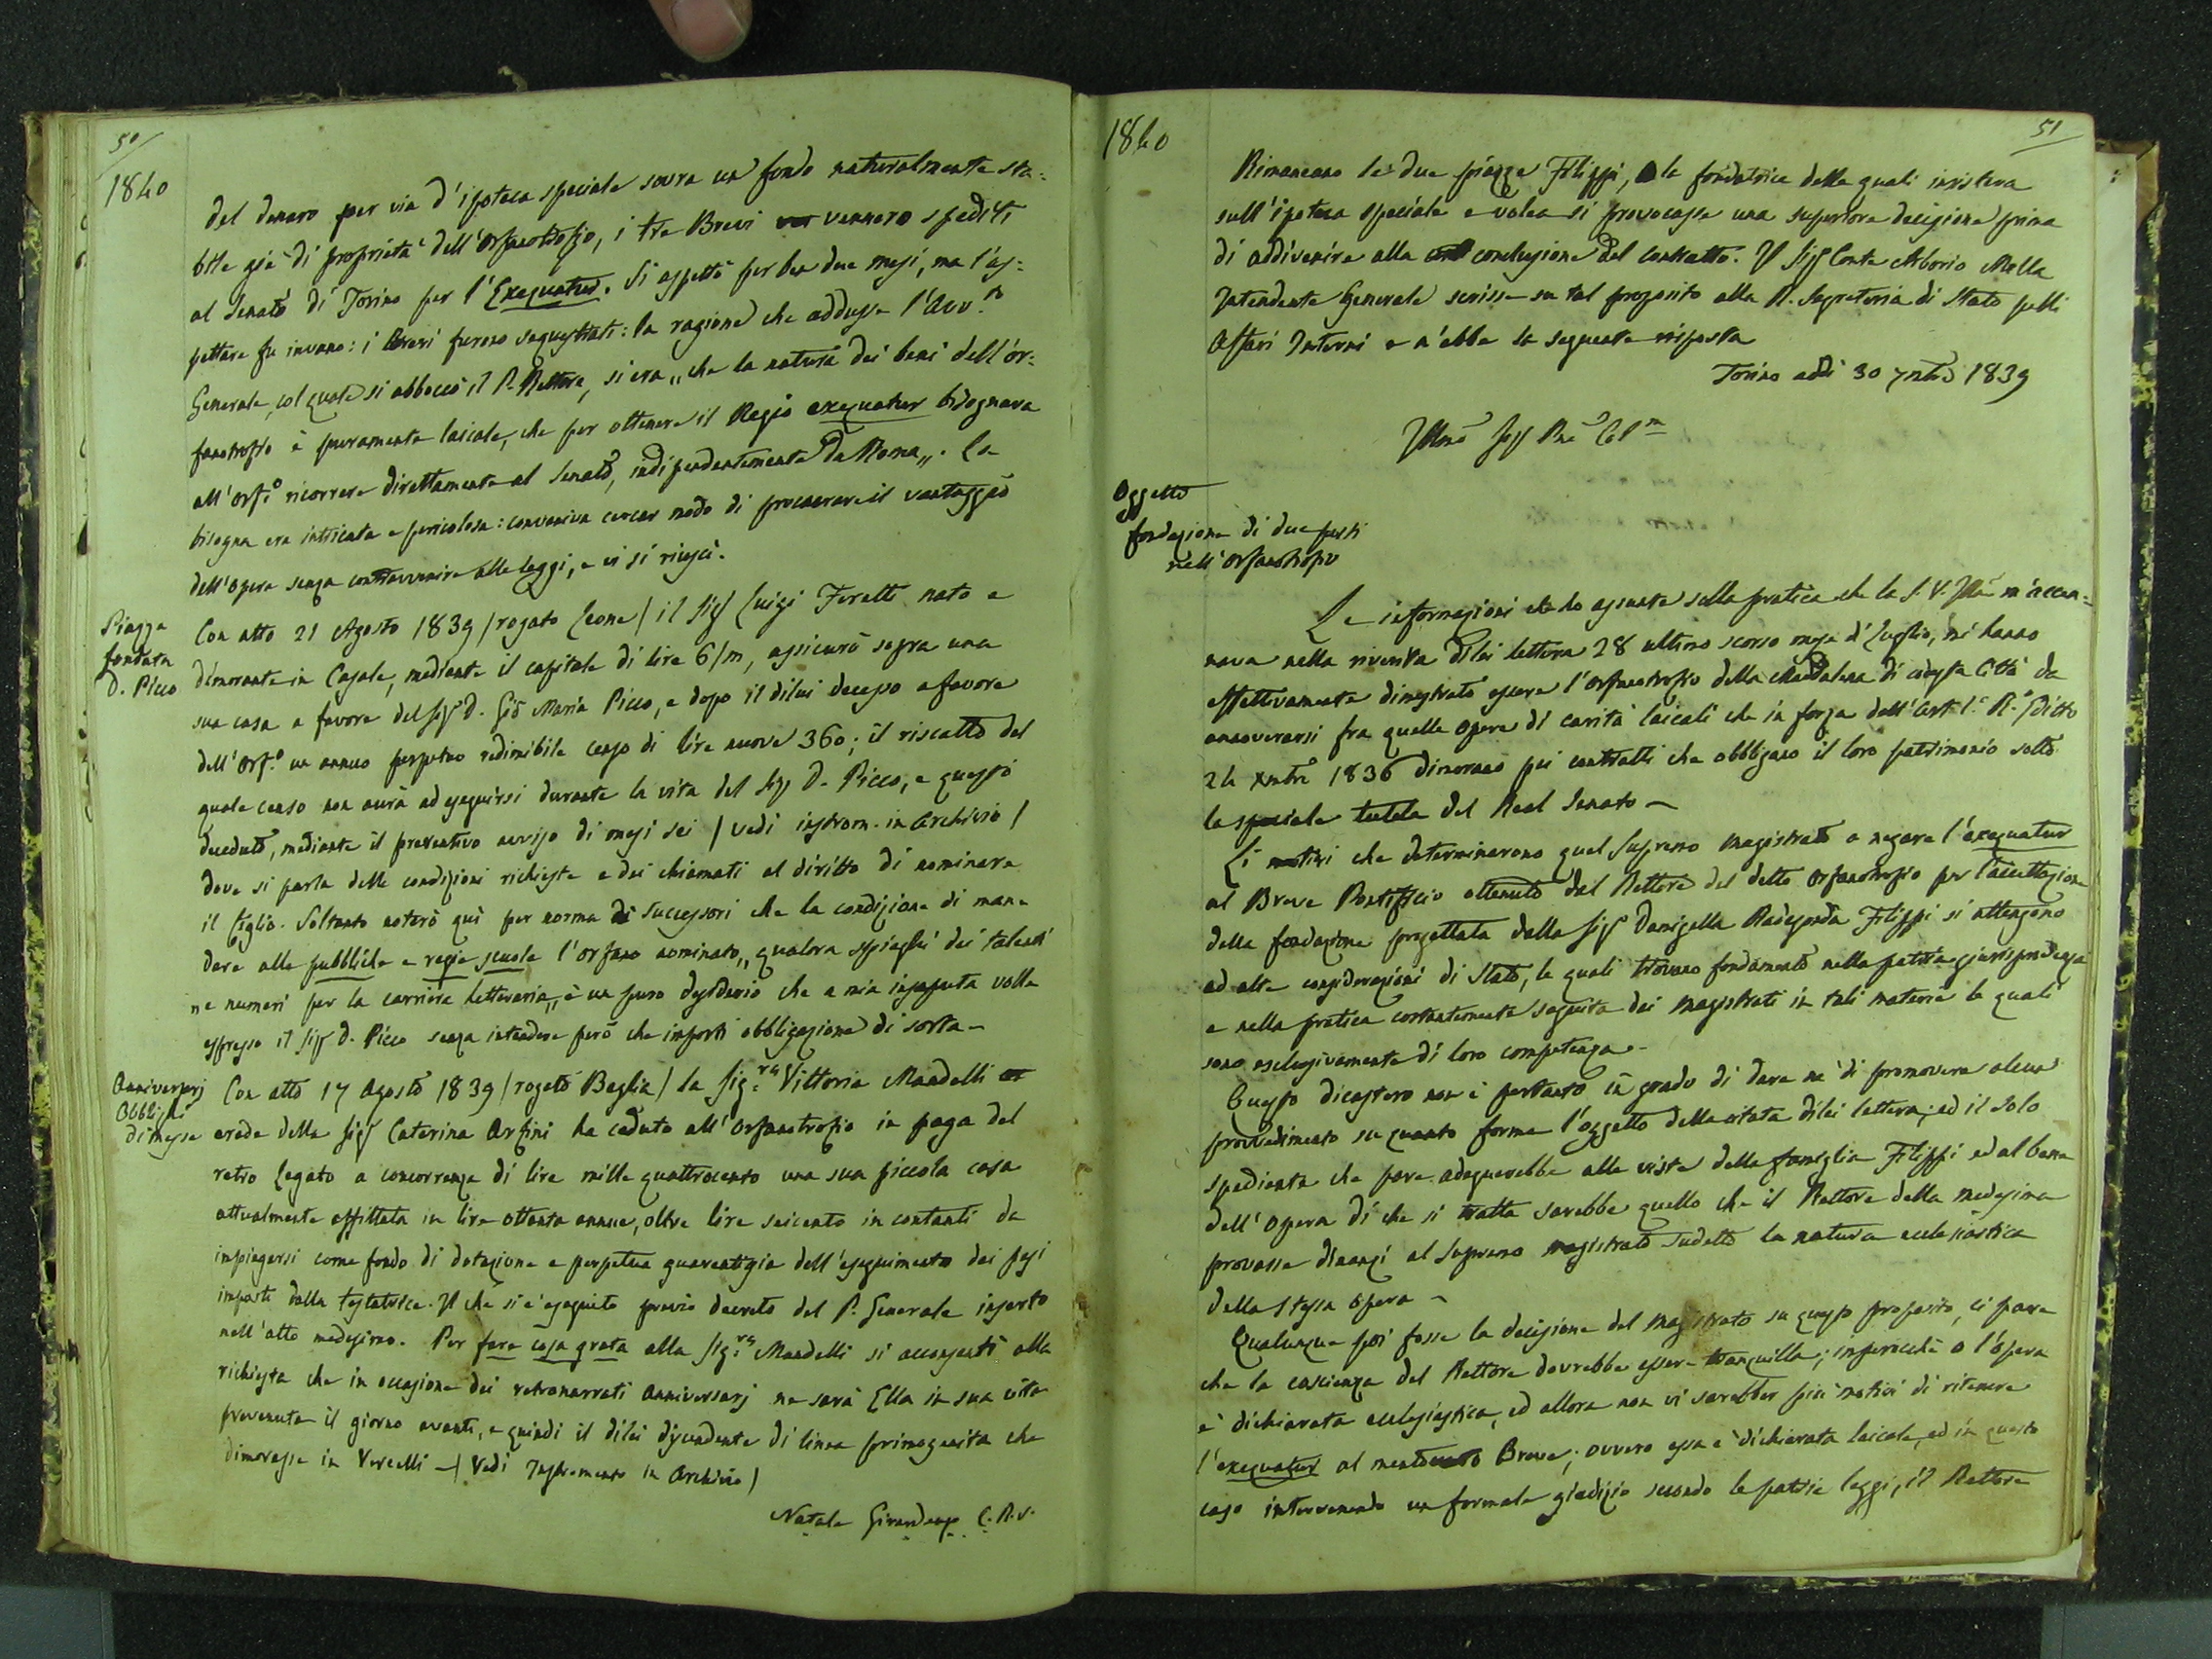 50
1840
del denaro per via d'ipoteca speciale sovra un fondo naturalmente sta=
bile già di proprietà dell'Orfanotrofio, i tre Brevi vennero spediti
al Senato di Torino per l'Exequatur. Si aspettò per ben due mesi, ma l'as=
pettare fu invano: i Brevi furono sequestrati: la ragione che addusse l'Avv.to
Generale, col quale si abboccò il P. Rettore, si era „ che la natura dei beni dell'or=
fanotrofio è puramente laicale, che per ottenere il Regio exequatur bisognava
all'Orf.o ricorrere direttamente al Senato, indipendentemente da Roma „. La
bisogna era intricata e pericolosa: conveniva cercar modo di procacciare il vantaggio
dell'Opera senza contravvenire alle leggi, e vi si riuscì.
Piazza
fondata
D. Picco
Con atto 21 Agosto 1839 / rogato Leone / il Sig Luigi Feratti nato e
dimorante in Casale, mediante il capitale di lire 6/m, assicurò sopra una
sua casa a favore del Sig D. Gio Maria Picco, e dopo il dilui decesso a favore
dell'Orf.o un annuo perpetuo redimibile censo di lire nuove 360; il riscatto del
quale censo non avrà ad eseguirsi durante la vita del Sig D. Picco, e questo
deceduto, mediante il preventivo avviso di mesi sei / vedi instrom. in Archivio /
dove si parla delle condizioni richieste e dei chiamati al diritto di nominare
il figlio. Soltanto noterò quì per norma di Successori che la condizione di man=
dare alle pubbliche e regie scuole l'orfano nominato, „ qualora spieghi dei talenti
ne numeri per la carriera letteraria „ è un puro desiderio che a mia insaputa volle
espresso il Sig D. Picco senza intendere però che importi obbligazione di sorta –
Anniversarj
Obblighi
di messe
Con atto 17 Agosto 1839 / rogato Baglia / la Sig.ra Vittoria Mandelli
erede della Sig Caterina Arfini ha ceduto all'Orfanotrofio in paga del
retro legato a concorrenza di lire mille quattrocento una sua piccola casa
attualmente affittata in lire ottanta annue, oltre lire seicento in contanti da
impiegarsi come fondo di dotazione e perpetua guarentigia dell'eseguimento dei pesi
imposti dalla testatrice. Il che si è eseguito previo decreto del P. Generale inserto
nell'atto medesimo. Per fare cosa grata alla Sig.ra Mandelli si acconsentì alla
richiesta che in occasione dei retronarrati Anniversarj ne sarà Ella in sua vita
prevenuta il giorno avanti, e quindi il dilei discendente di linea primogenita che
dimorasse in Vercelli – / Vedi Instromento in Archivio /
Natale C.R.S.
51
1840
Rimaneano le due piazze Filippi, la fondatrice delle quali insisteva
sull'ipoteca speciale e volea si provocasse una superiore decisione prima
di addivenire alla conclusione del contratto. Il Sig Conte Arborio Mella
Intendente Generale scrisse su tal proposito alla R. Segreteria di Stato pelli
Affari Interni e n'ebbe la seguente risposta
Torino addì 30 7mbre 1839
Illmo Sig Pne Col.m
Oggetto
fondazione di due posti
nell'orfanotrofio
Le informazioni che ho assunte sulla pratica che la S.V. Illma m'accen=
nava nella riverita dilei lettera 28 ultimo scorso mese di Luglio, mi hanno
effettivamente dimostrato essere l'orfanotrofio della Maddalena di codesta Città da
annoverarsi fra quelle opere di carità laicali che in forza dell'Art. 1.o R.o Editto
24 Xmbre 1836 dimorano pei contratti che obbligano il loro patrimonio sotto
la speciale tutela del Real Senato –
Li motivi che determinarono quel Supremo Magistrato a negare l'exequatur
al Breve Pontificio ottenuto dal Rettore del detto Orfanotrofio per l'accettazione
della fondazione progettata dalla Sig Damigella Radegonda Filippi si attengono
ad alte considerazioni di Stato, le quali trovano fondamento nella patria giurisprudenza
e nella pratica costantemente seguita dai Magistrati in tali materie le quali
sono esclusivamente di loro competenza –
Questo dicastero non è pertanto in grado di dare ne di promovere alcun
provvedimento su quanto forma l'oggetto della citata dilei lettera; ed il solo
spediente che pare adeguerebbe alle viste della famiglia Filippi ed al bene
dell'Opera di che si tratta sarebbe quello che il Rettore della medesima
provasse dinanzi al Supremo Magistrato sudetto la natura ecclesiastica
della stessa Opera –
Qualunque poi fosse la decisione del Magistrato su questo proposito, ci pare
che la coscienza del Rettore dovrebbe essere tranquilla; impericchè o l'Opera
è dichiarata ecclesiastica, ed allora non vi sarebber più motivi di ritenere
l'exequatur al mentovato Breve; ovvero essa è dichiarata laicale, ed in questo
caso intervenendo un formale giudizio secondo le patrie leggi, il Rettore